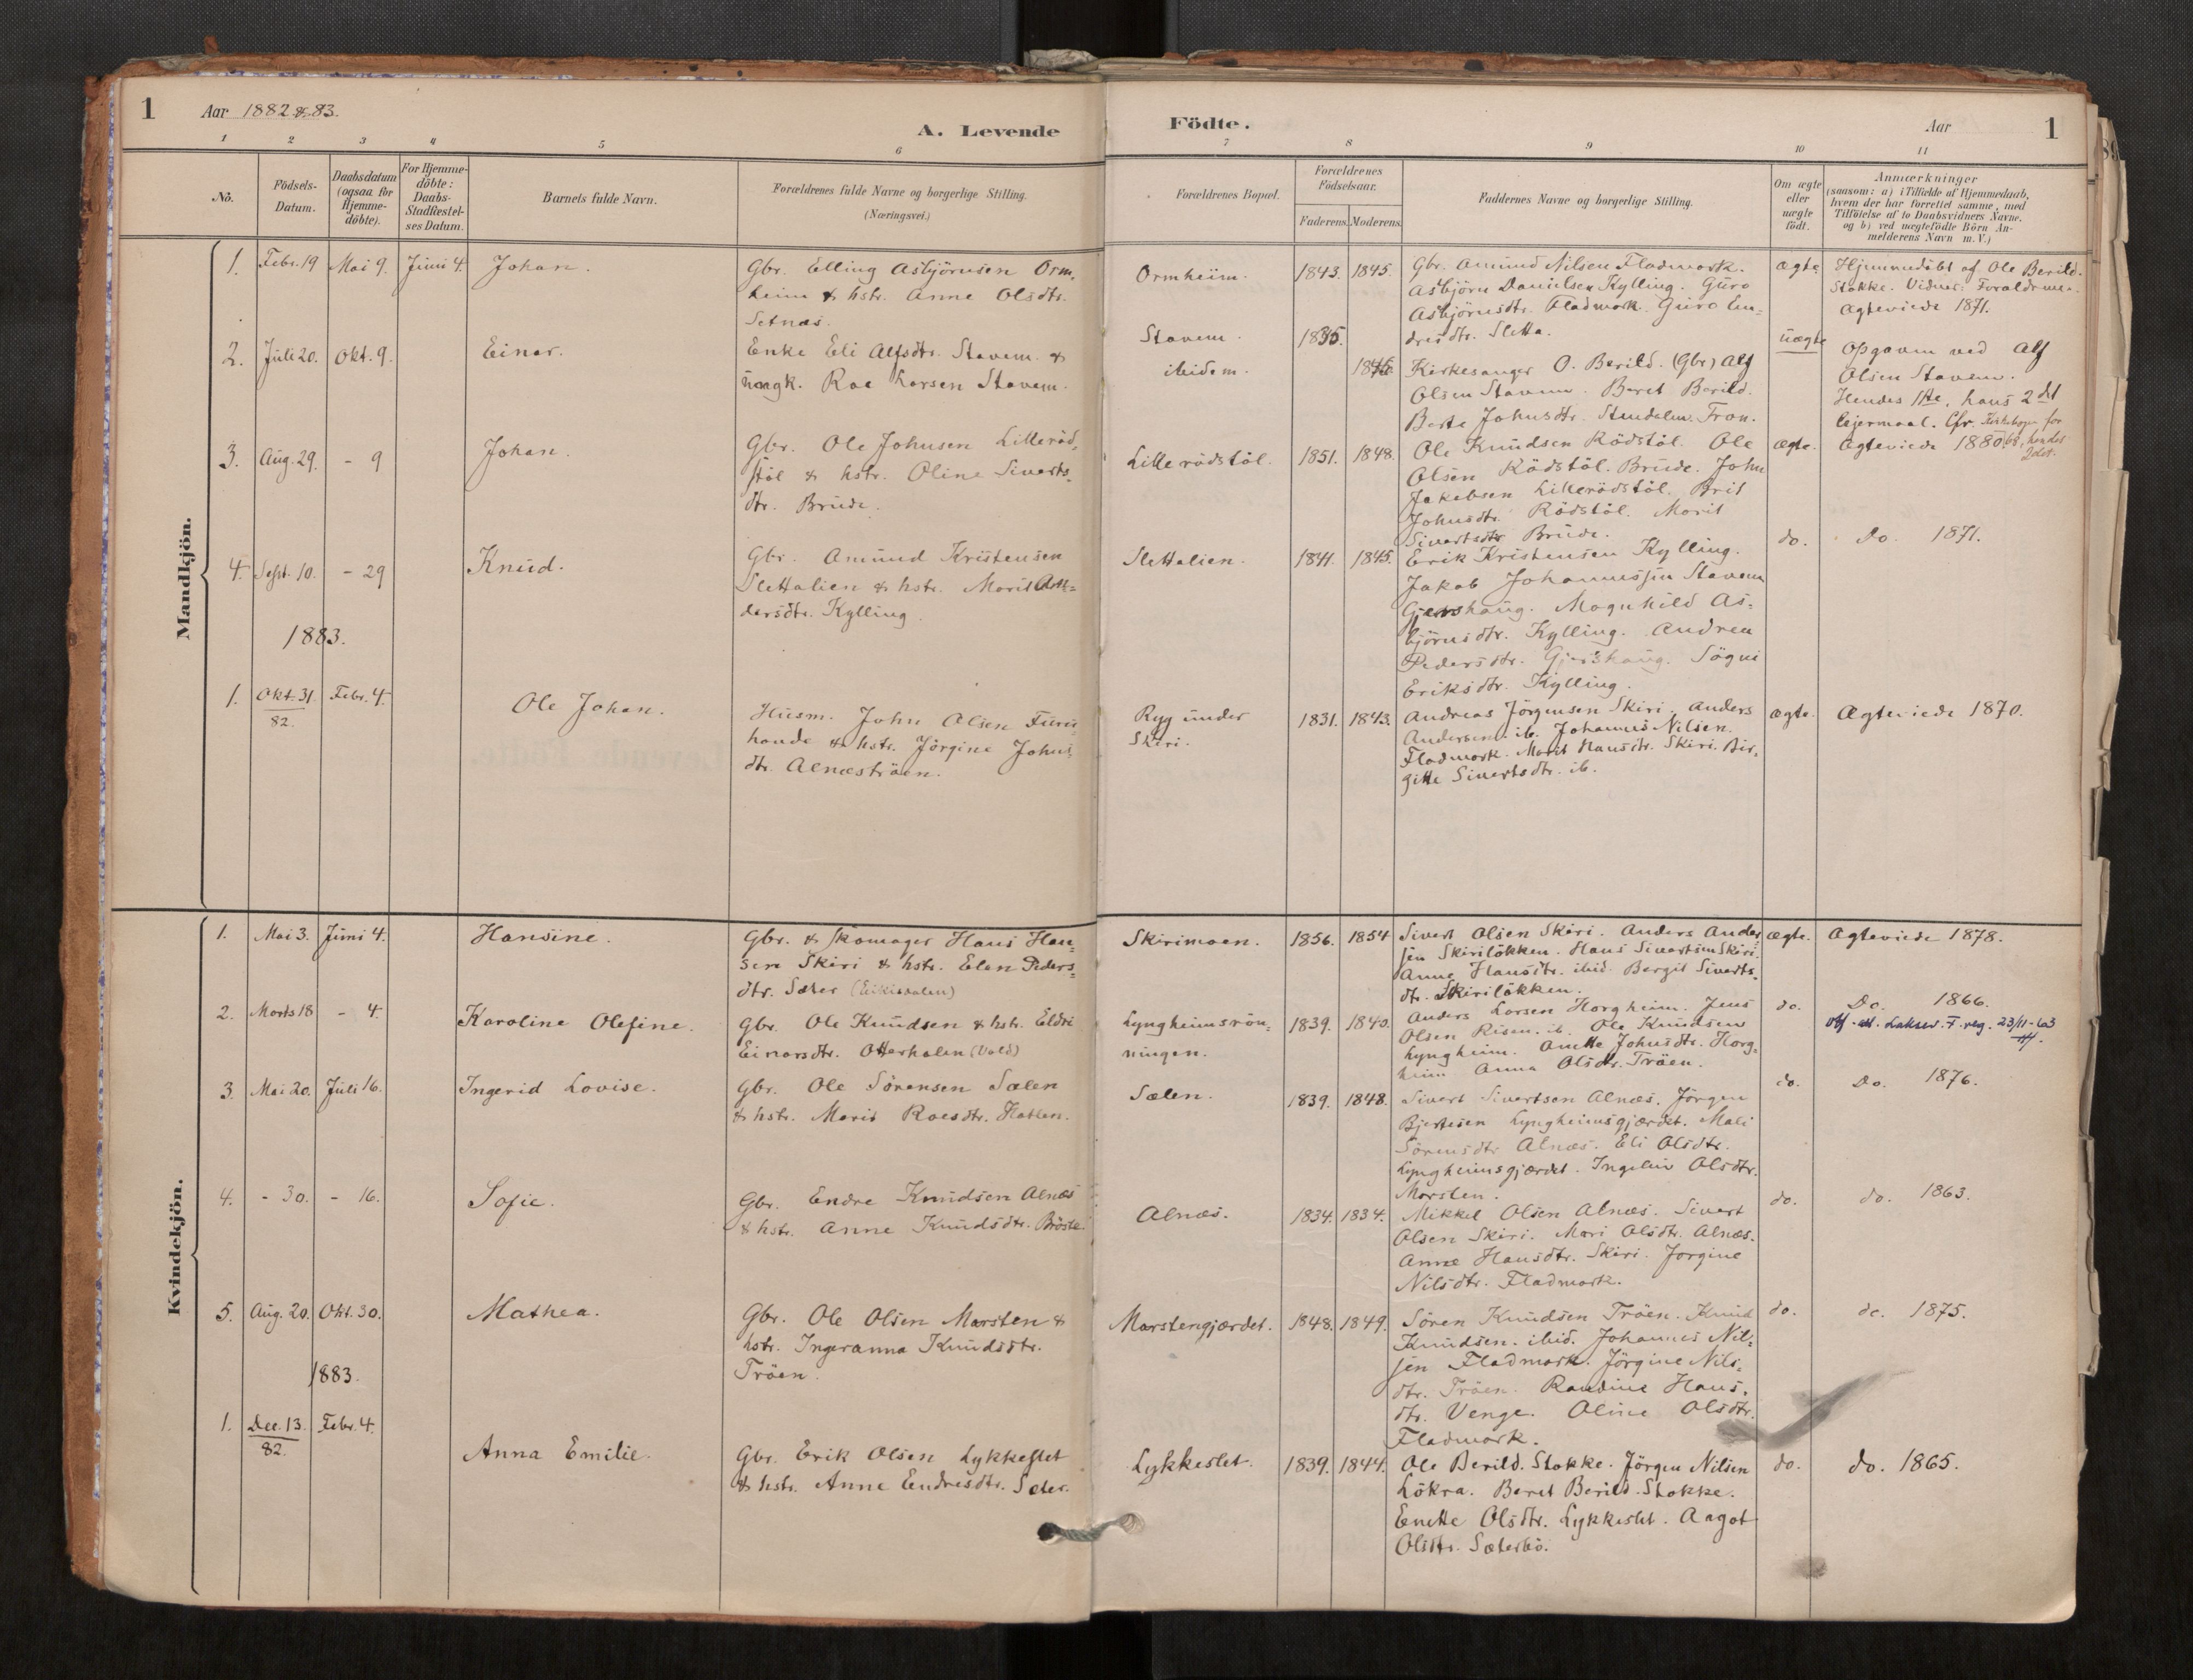 1 Aar 1882 & 83.
A. Levende Födte.
Aar 1
1 2 3 4 5 6 7 8 9 10 11
No.
Födsels-
Datum.
Daabsdatum
(ogsaa for
Hjemme-
döbte).
For Hjemme-
döbte:
Daabs-
Stadfæstel-
ses Datum.
Barnets fulde Navn.
Forældrenes fulde Navne og borgerlige Stilling.
(Næringsvei.)
Forældrenes Bopæl.
Forældrenes
Födselsaar.
Faderens. Moderens.
Faddernes Navne og borgerlige Stilling.
Om ægte
eller
uægte
födt.
Anmærkninger
(saasom: a) i Tilfælde af Hjemmedaab,
hvem der har forrettet samme, med
Tilföielse af to Daabsvidners Navne,
og b) ved uægtefödte Börn An-
melderens Navn m. V.)
Mandkjön.
1. Febr. 19 Mai 9. Juni 4. Johan.
Gbr. Elling Asbjörnsen Orm-
heim & hstr. Anne Olsdtr.
Setnæs.
Ormheim. 1843. 1845.
Gbr. Amund Nilsen Fladmark.
Asbjörn Danielsen Kylling. Guro
Asbjörnsdtr. Fladmark. Guro En-
dresdtr. Sletta.
ægte
Hjemmedöbt af Ole Berild.
Stokke. Vidner: Forældrene.
Ægteviede 1871.
2. Juli 20. Okt. 9. Einar.
Enke Eli Alfsdtr. Stavem &
ungk. Roe Larsen Stavem.
Stavem. 1835.
ibidem. 1846.
Kirkesanger O. Berild. (Gbr) Alf
Olsen Stavem. Beret Berild.
Berte Johnsdtr. Stendalen. Tron.
uægte
Opgaven ved Alf
Olsen Stavem.
Hendes 1ste, hans 2det
Leiermaal. Cfr. Kirkebogen for
3. Aug. 29. - 9 Johan.
Gbr. Ole Johnsen Lilleröd-
stöl & hstr. Oline Siverts-
dtr. Brude.
Lillerödstöl. 1851. 1848.
Ole Knudsen Rödstöl. Ole
Olsen Rödstöl. Brude. John
Jakobsen Lillerödstöl. Brit
Johnsdtr. Rödstöl. Marit
Sivertsdtr. Brude.
ægte.
Ægteviede 1880
4. Sept. 10. - 29 Knud.
Gbr. Amund Kristensen
Slettalien & hstr. Marit An-
dersdtr. Kylling.
Slettalien. 1841. 1845.
Erik Kristensen Kylling.
Jakob Johannessen Stavem
Gjershaug. Magnhild As-
björnsdtr. Kylling. Andrea
Pedersdtr. Gjershaug. Sögni
Eriksdtr. Kylling.
do. Do. 1871.
1883.
1. Okt. 31 82. Febr. 4. Ole Johan.
Husm. John Olsen Furu-
hande & hstr. Jörgine Johns-
dtr. Alnæströen.
Ryg under
Skiri.
1831. 1843.
Andreas Jörgensen Skiri. Anders
Andersen. ib. Johannes Nilsen.
Fladmark. Marit Hansdtr. Skiri. Bir-
gitte Sivertsdtr. ib.
ægte. Ægteviede 1870.
Kvindekjön.
1. Mai 3. Juni 4. Hansine.
Gbr. & skomager Hans Han-
sen Skiri & hstr. Elen Peders-
dtr. Sæter (Eikisdalen)
Skirimoen. 1856. 1854
Sivert Olsen Skiri. Anders Ander-
sen Skirilökken. Hans Sivertsen Skiri.
Anne Hansdtr. ibid. Bergit Siverts-
dtr. Skirilökken.
ægte. Ægteviede 1878.
2. Marts 18 - 4. Karoline Olefine.
Gbr. Ole Knudsen & hstr. Eldri
Einarsdtr. Otterhalen (Vold)
Lyngheimsrön-
ningen.
1839. 1840.
Anders Larsen Horgheim. Jens
Olsen Risen. ib. Ole Knudsen
Lyngheim. Anette Johnsdtr. Horg-
heim Anna Olsdtr. Tröen.
do. Do. 1866.
3. Mai 20. Juli 16. Ingerid Lovise.
Gbr. Ole Sörensen Sælen
& hstr. Marit Roesdtr. Hatlen.
Sælen. 1839. 1848.
Sivert Sivertsen Alnæs. Jörgen
Bjertesen Lyngheimsgjærdet. Mali
Sörensdtr. Alnæs. Eli Olsdtr.
Lyngheimsgjærdet. Ingeleiv Olsdtr.
Marsten.
do. Do. 1876.
4. - 30. - 16. Sofie.
Gbr. Endre Knudsen Alnæs
& hstr. Anne Knudsdtr. Bröste.
Alnæs. 1834. 1834.
Mikkel Olsen Alnæs. Sivert
Olsen Skiri. Mari Olsdtr. Alnæs.
Anne Hansdtr. Skiri. Jörgine
Nilsdtr. Fladmark.
do. do. 1863.
5. Aug. 20. Okt. 30. Mathea.
Gbr. Ole Olsen Marsten &
hstr. Ingeranna Knudsdtr.
Tröen.
Marstengjærdet. 1848. 1849.
Sören Knudsen Tröen. Knud
Knudsen. ibid. Johannes Nil-
sen Fladmark. Jörgine Nils-
dtr. Tröen. Randine Hans-
dtr. Venge. Oline Olsdtr.
Fladmark.
do. do. 1875.
1883.
1. Dec. 13. 82. Febr. 4. Anna Emilie.
Gbr. Erik Olsen Lykkeslet
& hstr. Anne Endresdtr. Sæter.
Lykkeslet. 1839. 1844.
Ole Berild. Stokke. Jörgen Nilsen
Lökra. Beret Berild. Stokke.
Enette Olsdtr. Lykkeslet. Aagot
Olsdtr. Sæterbö.
do. do. 1865.